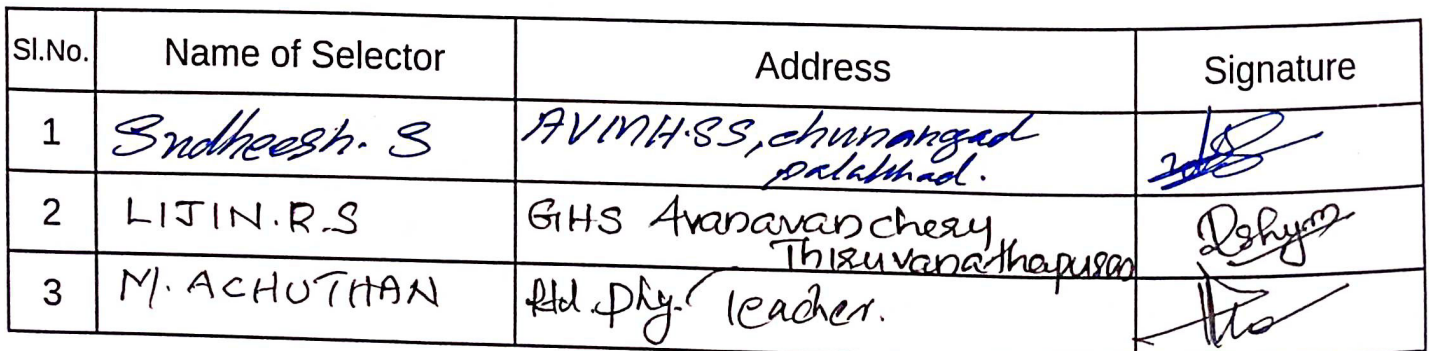 Sl.No. Name of Selector Address Signature
1 Sudheesh. S AVMH.SS, chunangad
palakkad.
2 LIJIN.R.S GHS Avanavanchery
Thiruvananthapuram
3 M. ACHUTHAN Rtd. Phy. Teacher.